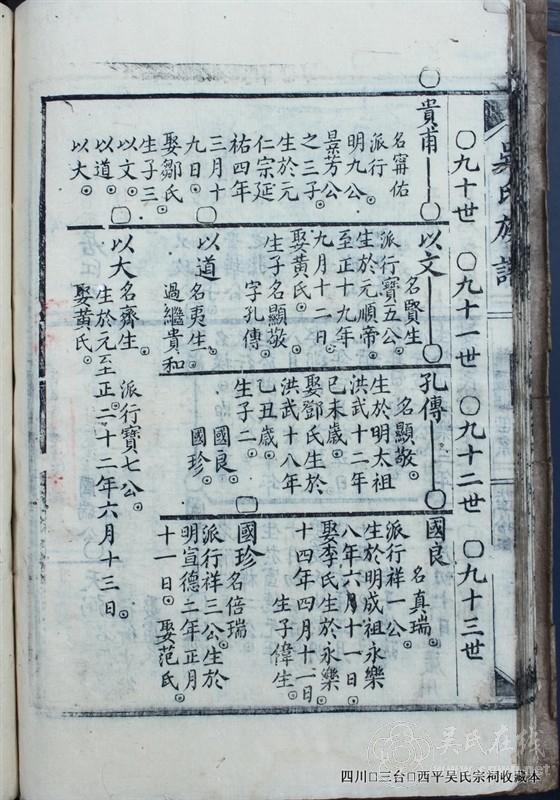 吳氏族譜
○九十世 ○九十一世 ○九十二世 ○九十三世
貴甫
名甯佑
派行
明九公
景芳公
之三子
生於元
仁宗延
祐四年
三月十
九日
娶鄒氏
生子三
以文
以道
以大
以文
名賢生
派行寶五公
生於元順帝
至正十九年
九月十二日
娶黃氏
生子名顯敬
字孔傳
以道
名夷生
過繼貴和
以大
名齊生 派行寶七公
生於元至正二十二年六月十三日
娶黃氏
孔傳
名顯敬
生於明太祖
洪武十二年
己未歲
娶鄧氏生於
洪武十八年
乙丑歲
生子二
國良
國珍
國良
名真瑞
派行祥一公
生於明成祖永樂
八年六月十一日
娶李氏生於永樂
十四年四月十一日
生子偉生
國珍
名倍瑞
派行祥三公生於
明宣德二年正月
十一日 娶范氏
吴氏在线
四川□三台□西平吴氏宗祠收藏本